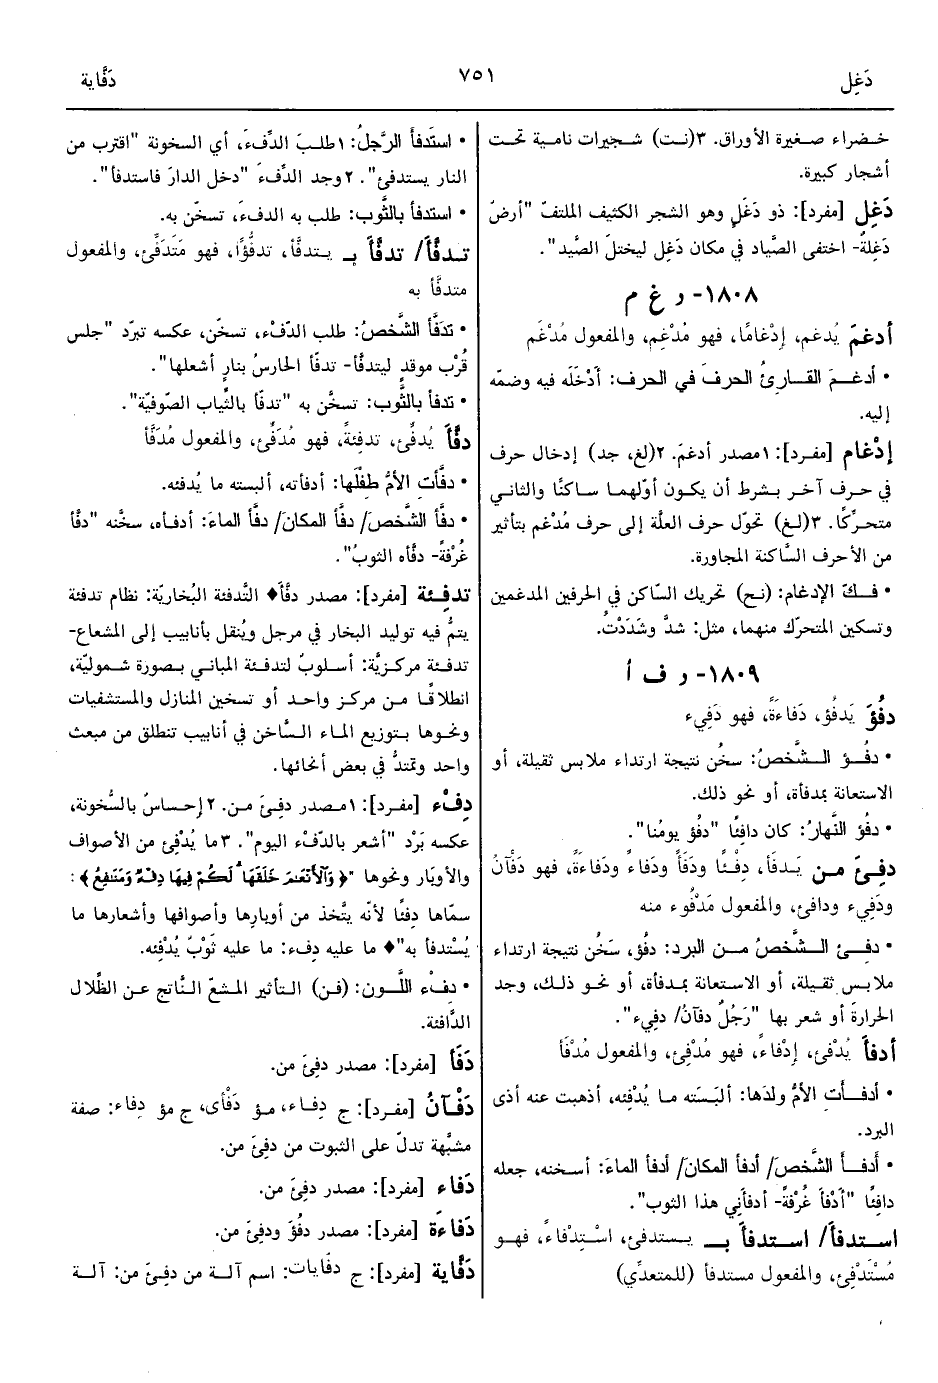 دَغِل
٧٥١
دَفَّاية
خضراء صغيرة الأوراق. ٣(نت) شجيرات نامية تحت
أشجار كبيرة.
دَغِل [مفرد]: ذو دَغَلٍ وهو الشجر الكثيف الملتفّ "أرضٌ
دَغِلةٌ- اختفى الصَّياد في مكان دَغِل ليختلَ الصَّيد".
١٨٠٨- د غ م
أدغمَ يُدغم، إدْغامًا، فهو مُدْغِم، والمفعول مُدْغَم
• أدغـمَ القـارئُ الحرفَ في الحرف: أدْخَلَه فيه وضمّه
إليه.
إدْغام [مفرد]: ١مصدر أدغمَ. ٢(لغ، جد) إدخال حرف
في حرف آخر بشرط أن يكون أوّلهما ساكنًا والثاني
متحرِّكًا. ٣(لغ) تحوّل حرف العلَّة إلى حرف مُدْغم بتأثير
من الأحرف السَّاكنة المجاورة.
• فـكّ الإدغام: (نح) تحريك السَّاكن في الحرفين المدغمين
وتسكين المتحرِّك منهما، مثل: شدَّ وشَدَدْتُ.
١٨٠٩- د ف أ
دفُؤَ يَدفُؤ، دَفاءةً، فهو دَفِيء
• دفُـؤ الـشَّخصُ: سخُن نتيجة ارتداء ملابس ثقيلة، أو
الاستعانة بمدفأة، أو نحو ذلك.
• دفُؤ النَّهارُ: كان دافِئًا "دفُؤ يومُنا".
دفِئَ مـن يَـدفَأ، دِفْـئًا ودَفَأً ودَفاءً ودَفاءةً، فهو دَفْآنُ
ودَفِيء ودافئ، والمفعول مَدْفُوء منه
• دفـئ الـشَّخصُ مـن البرد: دفُؤ، سَخُن نتيجة ارتداء
ملابس ثقيلة، أو الاستعانة بمدفأة، أو نحو ذلـك، وجد
الحرارةَ أو شعر بها "رَجُلٌ دفآنُ/ دفِيء".
أدفأَ يُدْفئ، إدْفاءً، فهو مُدْفِئ، والمفعول مُدْفَأ
• أدفـأتِ الأمُّ ولدَها: ألبَسَته ما يُدْفِئه، أذهبت عنه أذى
البرد.
• أَدفـأ الشَّخصُ/ أدفأ المكانَ/ أدفأ الماءَ: أسخنه، جعله
دافِئًا "أدْفأ غُرْفةً- أدفأني هذا الثوب".
اسـتدفأ/ اسـتدفأ بـ يستدفئ، اسْتِدْفاءً، فهـو
مُسْتَدْفِئ، والمفعول مستدفأ (للمتعدِّي)
• استَدفأ الرَّجلُ: ١طلبَ الدِّفءَ، أي السخونة "اقترب من
النار يستدفئ". ٢وجد الدِّفءَ "دخل الدارَ فاستدفأ".
• استدفأ بالثَّوب: طلب به الدفءَ، تسخّن به.
تـدفَّأَ/ تدفَّأَ بـ يتدفَّأ، تدفُّؤًا، فهو مُتَدَفِّئ، والمفعول
متدفَّأ به
• تدَفَّأ الشَّخصُ: طلب الدّفْء، تسخّن، عكسه تبرّد "جلس
قُرْب موقدٍ ليتدفَّأ- تدفّأ الحارسُ بنارٍ أشعلها".
• تدفأ بالثَّوب: تسخَّن به "تدفّأ بالثِّياب الصّوفيّة".
دفَّأَ يُدفِّئ، تدفئةً، فهو مُدَفِّئ، والمفعول مُدَفَّأ
• دفَّأت الأمُّ طفلَها: أدفأته، ألبسته ما يُدفئه.
• دفَّأ الشَّخصُ/ دفَّأ المكانَ/ دفَّأ الماءَ: أدفـأه، سخَّنه "دفّأ
غُرْفةً- دفَّأه الثوبُ".
تدفِـئة [مفرد]: مصدر دفَّأَ♦ التَّدفئة البُخاريّة: نظام تدفئة
يتمُّ فيه توليد البخار في مرجل ويُنقل بأنابيب إلى المشعاع-
تدفـئة مركـزيَّة: أسلوبٌ لتدفـئة المباني بـصورة شـموليّة،
انطلاقًا مـن مركـز واحـد أو تسخين المنازل والمستشفيات
ونحـوها بـتوزيع المـاء السَّاخن في أنابيب تنطلق من مبعث
واحد وتمتدُّ في بعض أنحائها.
دِفْء [مفرد]: ١مصدر دفِئَ من. ٢إحساسٌ بالسُّخونة،
عكسه بَرْد "أشعر بالدّفْء اليوم". ٣ما يُدْفِئ من الأصواف
والأوبَار ونحوها "﴿وَٱلۡأَنۡعَٰمَ خَلَقَهَاۖ لَكُمۡ فِيهَا دِفۡءٞ وَمَنَٰفِعُ﴾:
سمّاها دِفئًا لأنّه يتَّخذ من أوبارها وأصوافها وأشعارها ما
يُسْتدفأ به"♦ ما عليه دِفء: ما عليه ثَوْبٌ يُدْفِئه.
• دفْء اللَّون: (فن) التأثير المشعّ النَّاتج عن الظِّلال
الدَّافئة.
دَفَأ [مفرد]: مصدر دفِئَ من.
دَفْـآنُ [مفرد]: ج دِفـاء، مـؤ دَفْأى، ج مؤ دِفاء: صفة
مشبَّهة تدلّ على الثبوت من دفِئَ من.
دَفاء [مفرد]: مصدر دفِئَ من.
دَفاءَة [مفرد]: مصدر دفُؤَ ودفِئَ من.
دَفَّاية [مفرد]: ج دفّايات: اسم آلـة من دفِئَ من: آلـة